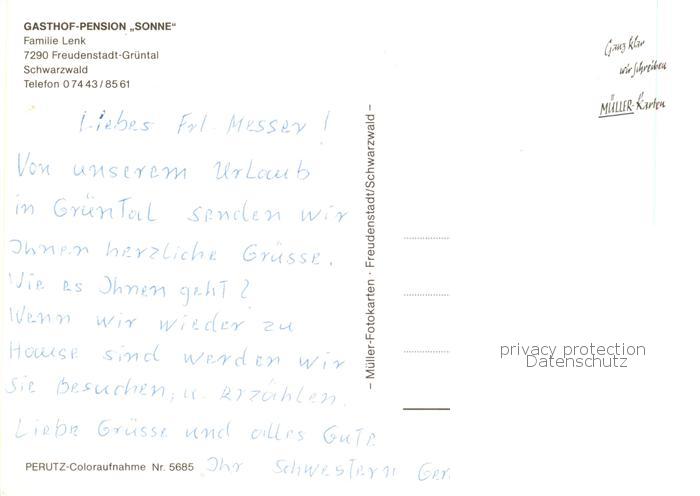 GASTHOF-PENSION „SONNE“
Familie Lenk
7290 Freudenstadt-Grüntal
Schwarzwald
Telefon 0 74 43 / 85 61
Ganz klar
wir schreiben
MÜLLER-Karten
Liebes Frl. Messer !
Von unserem Urlaub
in Grüntal senden wir
Ihnen herzliche Grüsse.
Wie es Ihnen geht ?
Wenn wir wieder zu
Hause sind werden wir
Sie besuchen, u. erzählen.
Liebe Grüsse und alles Gute
Ihr Schwestern Ger
PERUTZ-Coloraufnahme Nr. 5685
– Müller-Fotokarten · Freudenstadt/Schwarzwald –
privacy protection
Datenschutz